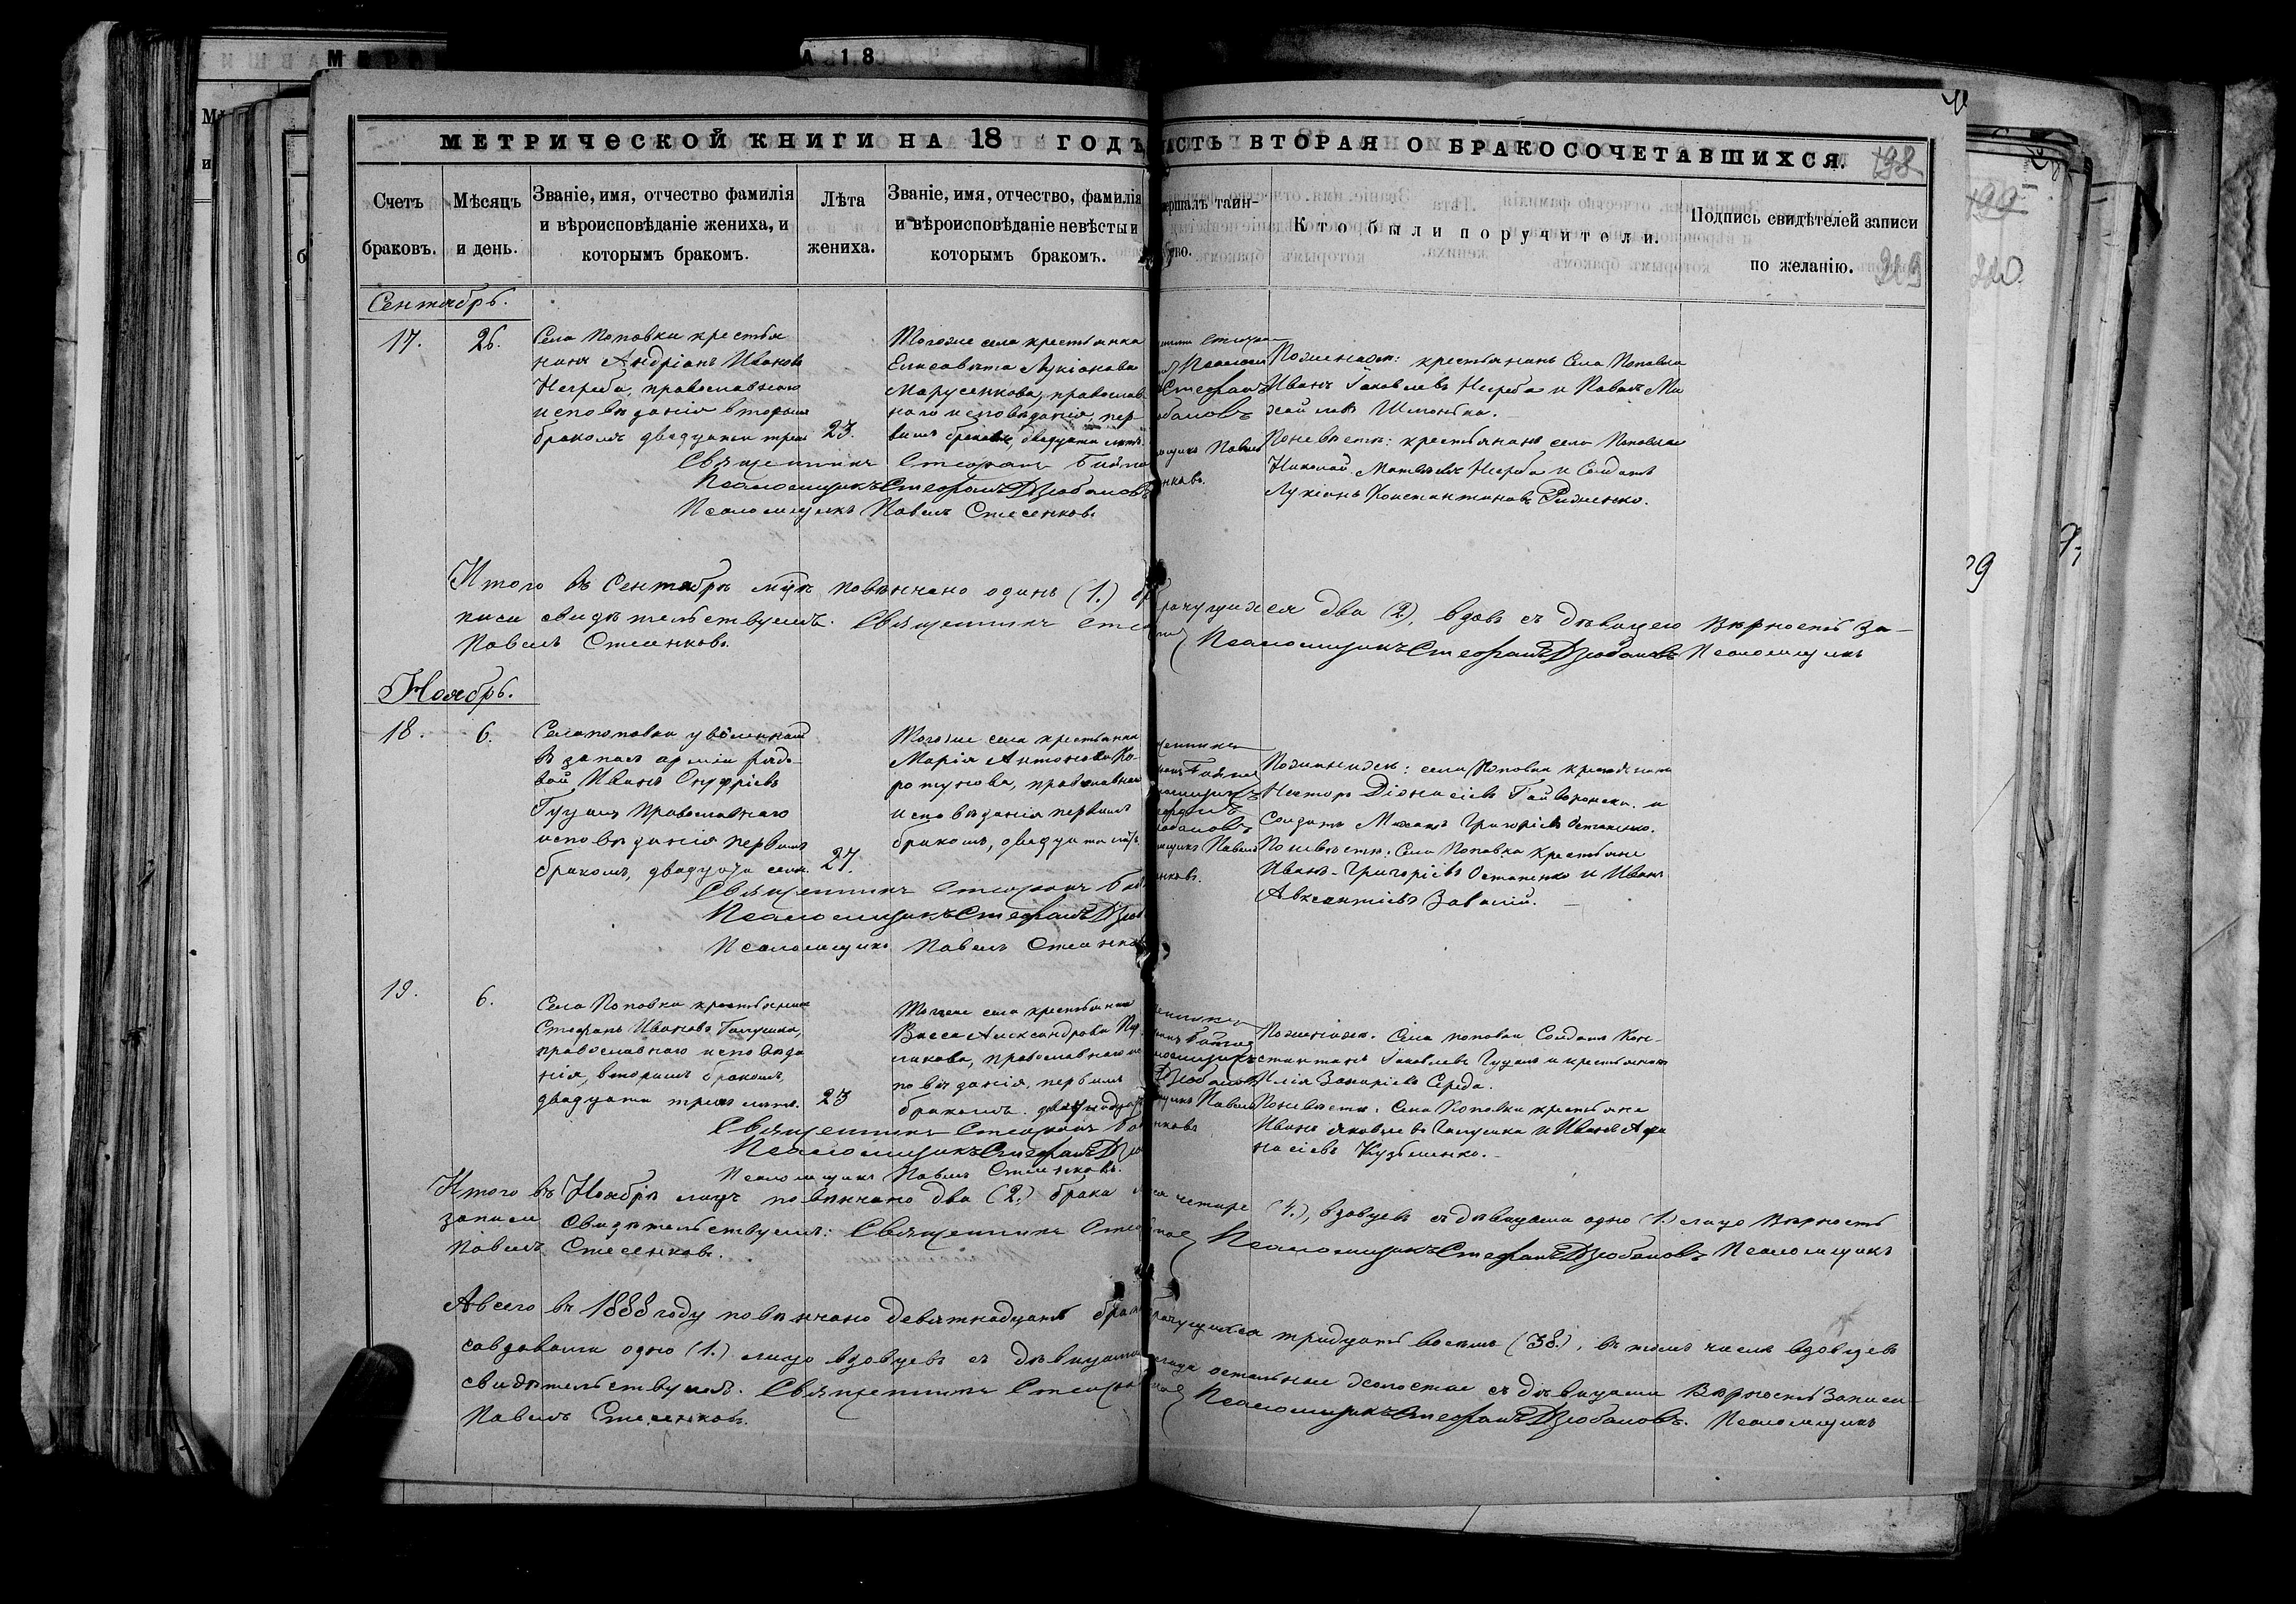 МЕТРИЧЕСКОЙ КНИГИ НА 18 ГОДЪ
АСТЬ ВТОРАЯ О БРАКОСОЧЕТАВШИХСЯ.
198
Счетъ браковъ.
Мѣсяцъ и день.
Званіе, имя, отчество фамилія
и вѣроисповѣданіе жениха, и
которымъ бракомъ.
Лѣта
жениха.
Званіе, имя, отчество, фамилія
и вѣроисповѣданіе невѣсты и
которымъ бракомъ.
ершалъ таин-
тво.
Кто были поручители.
Подпись свидѣтелей записи
по желанію.
Сентябрь.
17.
26.
Села Поповки крестья
нинъ Андріанъ Ивановъ
Негреба, православнаго
исповѣданія вторымъ
бракомъ двадцати трехъ
23.
Тогоже села крестьянка
Елисавета Лукіанова
Марусенкова, православ
наго исповѣданія, пер-
вымъ бракомъ, двадцати лѣтъ.
Поженихѣ: крестьянинъ Села Поповки
Иванъ Іаковлевъ Негреба и Павелъ Ми
хайловъ
Поневѣстѣ: крестьянинъ села Поповки
Николай Матвѣевъ Негреба и Солдатъ
Лукіанъ Константиновъ
Священникъ Стефанъ
Псаломщикъ Стефанъ Дзюбановъ
Псаломщикъ Павелъ Стесенковъ.
Итого въ Сентябрѣ мцѣ повѣнчано одинъ (1.) бр
рачущихся два (2.), вдовъ съ дѣвицею Вѣрность за-
писи свидѣтельствуемъ. Священникъ Сте
Псаломщикъ Стефанъ Дзюбановъ Псаломщикъ
Павелъ Стесенковъ.
Ноябрь.
18.
6.
Села поповки уволенный
въ запасъ арміи рядо-
вой Иванъ Онуфріевъ
Гузий Православнаго
исповѣданія первымъ
бракомъ, двадцати семи
27.
Тогоже села крестьянка
Марія Антонова Ко-
ротунова, православнаго
исповѣданія первымъ
бракомъ, двадцати лѣтъ
Поженихѣ: села Поповки крестьянинъ
Несторъ Діонисіевъ Гайворонскій и
Солдатъ Григоріевъ Остапенко.
Поневѣстѣ: Села Поповки крестьяне
Иванъ Григоріевъ Остапенко и Иванъ
Авксентіевъ Завалій.
Священникъ Стефанъ
Псаломщикъ Стефанъ Дзю
Псаломщикъ Павелъ Стесенков
19.
6.
Села Поповки крестьянинъ
Стефанъ Ивановъ Галушка,
православнаго исповѣда
нія, вторымъ бракомъ,
двадцати трехъ лѣтъ.
23
Тогоже села крестьянка
Васса Александрова
православнаго ис
повѣданія, первымъ
бракомъ.
Поженихѣ. Села поповки Солдатъ Кон-
стантинъ Іаковлевъ и крестьянинъ
Илія Захаріевъ Середа.
Поневѣстѣ: Села Поповки крестьяне
Иванъ Яковлевъ Галушка и Иванъ Афа
насіевъ Кузьменко.
Священникъ Стефанъ
Псаломщикъ Стефанъ Дзю
Псаломщикъ Павелъ Стесенковъ.
Итого въ Ноябрѣ мцѣ повѣнчано два (2.) брака
четыре (4.), вдовцевъ съ дѣвицами одно (1.) лицо Вѣрность
записи свидѣтельствуемъ: Священникъ Стеф
Псаломщикъ Стефанъ Дзюбановъ Псаломщикъ
Павелъ Стесенковъ.
Авсего въ 1888 году повѣнчано девятнадцать брак
брачущихся тридцать восемь (38.), въ томъ числѣ вдовцевъ
совдовами одно (1.) лицо вдовцевъ съ дѣвицами
остальные холостые съ дѣвицами Вѣрность записи
свидѣтельствуемъ. Священникъ Стефан
Псаломщикъ Стефанъ Дзюбановъ. Псаломщикъ
Павелъ Стесенковъ.